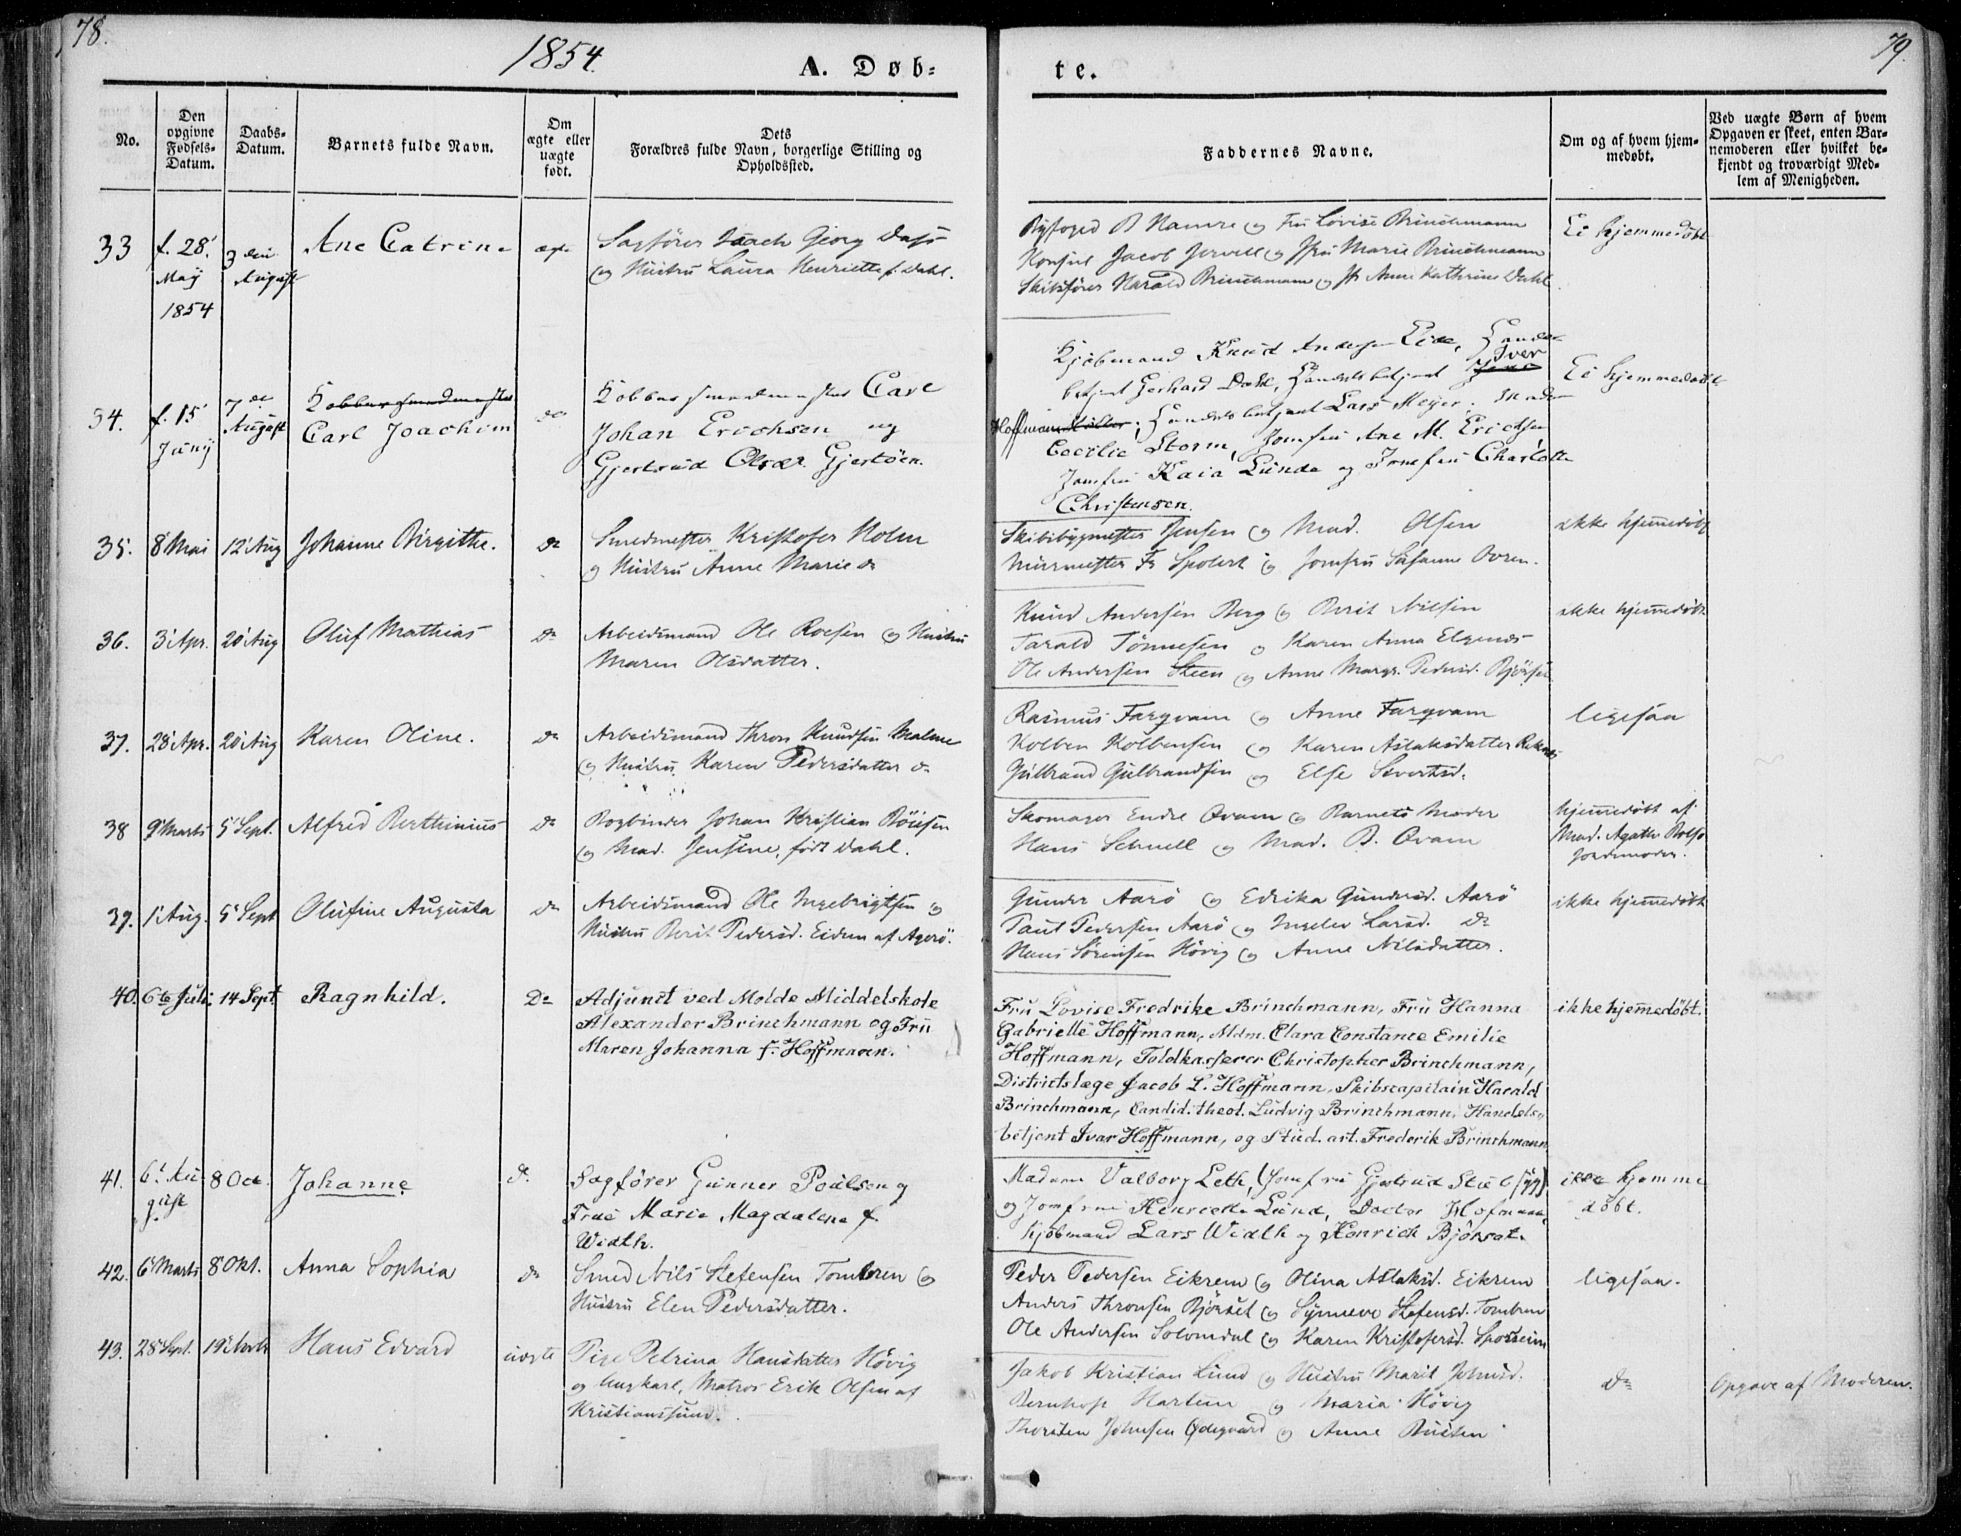 78.
1854.
A. Døb-
te.
79.
No.
Den opgivne Fødsels-Datum.
Daabs-Datum.
Barnets fulde Navn.
Om ægte eller uægte født.
Dets Forældres fulde Navn, borgerlige Stilling og Opholdssted.
Faddernes Navne.
Om og af hvem hjem-medøbt.
Ved uægte Børn af hvem Opgaven er skeet, enten Bar-nemoderen eller hvilket be-kjendt og troværdigt Med-lem af Menigheden.
33
f. 28'
May
1854
3 die
August
Ane Catrine
ægte
Sagfører Isach Georg Dass
og Hustru Laura Henriette f. Dahl.
Byfoged B Hamre og Fru Lovise Brinchmann
Konsul Jacob Jervell og Jfru Marie Brinchmann
Skibsfører Harald Brinchmann og Jfr Anne Kathrine Dahl
Ei hjemmedøbt
34.
f. 15'
Juny
7 de
August
Kobbersmedmester
Carl Joachim
do
Kobbersmedmester Carl
Johan Erichsen og
Gjertrud Olsdr. Gjertöen.
Kjøbmand Knud Andersen Eide, Handels
betjent Gerhard Dahl, Handelsbetjent Iver
Hoffmann, Handelsbetjent Lars Meyer. Madm
Cecilie Storm, Jomfru Ane M. Erichsen
Jomfru Kaia Lunde og Jomfru Charlotte
Christensen.
Ei hjemmedøbt
35.
8 Mai
12' Aug
Johanne Birgitte.
do
Smedmester Kristofer Holm
og Hustru Anne Marie do
Skibsbygmester Jensen og Mad. Olsen
Murmester Fr Spolert og Jomfru Susanne Ovren.
ikke hjemmedøbt
36.
3' Apr.
20' Aug
Oluf Mathias
do
Arbeidsmand Ole Roesen og Hustru
Maren Olsdatter.
Knud Andersen Berg og Berit Nilsen
Tarald Tönnesen og Karen Anna Elgenes
Ole Andersen Steen og Anne Margr. Pedersd. Bjørset
ikke hjemmedøbt
37.
28' Apr.
20' Aug
Karen Oline.
do
Arbeidsmand Thron Knudsen Malme
og Hustru Karen Pedersdatter do
Rasmus Fargvam og Anne Fargvam
Kolben Kolbensen og Karen Aslaksdatter Reknes
Gulbrand Gulbrandsen og Else Sivertsd.
ligesaa
38
9' Marts
5' Sept.
Alfred Berthinius
do
Bogbinder Johan Kristian Böiesen
og Mad. Jensine, født Dahl.
Skomager Endre Qvam og Barnets Moder
Hans Schnell og Mad. B. Qvam
hjemmedøbt af
Mad. Agathe Rolfs
Jordmoder.
39.
1' Aug.
5' Sept
Olufine Augusta
do
Arbeidsmand Ole Ingebrigtsen og
Hustru Berit Pedersd. Eidem af Agerö.
Gunder Aarö og Edrika Gundersd. Aarö
Paul Pedersen Aarö og Ingelev Larsd. do
Hans Sörensen Hövig og Anne Nilsdatter.
ikke hjemmedøbt
40.
6te Juli
14 Sept.
Ragnhild.
Do
Adjunct ved Molde Middelskole
Alexander Brinchmann og Fru
Maren Johanna f. Hoffmann.
Fru Lovise Fredrike Brinchmann, Fru Hanna
Gabrielle Hoffmann, Mdm. Clara Constance Emilie
Hoffmann, Toldkasserer Christopher Brinchmann,
Districtslæge Jacob L. Hoffmann, Skibscapitain Harald
Brinchmann, Candid. theol. Ludvig Brinchmann, Handels-
betjent Ivar Hoffmann, og Stud. art. Frederik Brinchmann
ikke hjemmedøbt.
41.
6' Au
gust
8 Oct.
Johanne
do
Sagfører Gunner Poulsen og
Frue Maria Magdalena f.
Width.
Madam Valborg Leth, Jomfru Gjertrud Stub
og Jomfrue Henriette Lund, Doctor Hofmann,
Kjøbmand Lars Width og Henrich Bjørset.
ikke hjemme
døbt.
42.
6' Marts
8 Okt.
Anna Sophia
do
Smed Nils Stefensen Tombren og
Hustru Elen Pedersdatter.
Peder Pedersen Eikrem og Olina Aslaksd. Eikrem
Anders Thronsen Bjørset og Synneve Stefensd. Tombren
Ole Andersen Solomdal og Karen Kristofersd.
ligesaa.
43.
28' Sept.
19'
Hans Edvard
uægte
Pige Petrina Hansdatter Hövig
og Ungkarl, Matros Erik Olsen af
Kristianssund.
Jakob Kristian Lund og Hustru Marit Johnsd.
Hartum og Maria Hövig
Thorsten Johnsen Ødegaard og Anne
do
Opgave af Moderen.